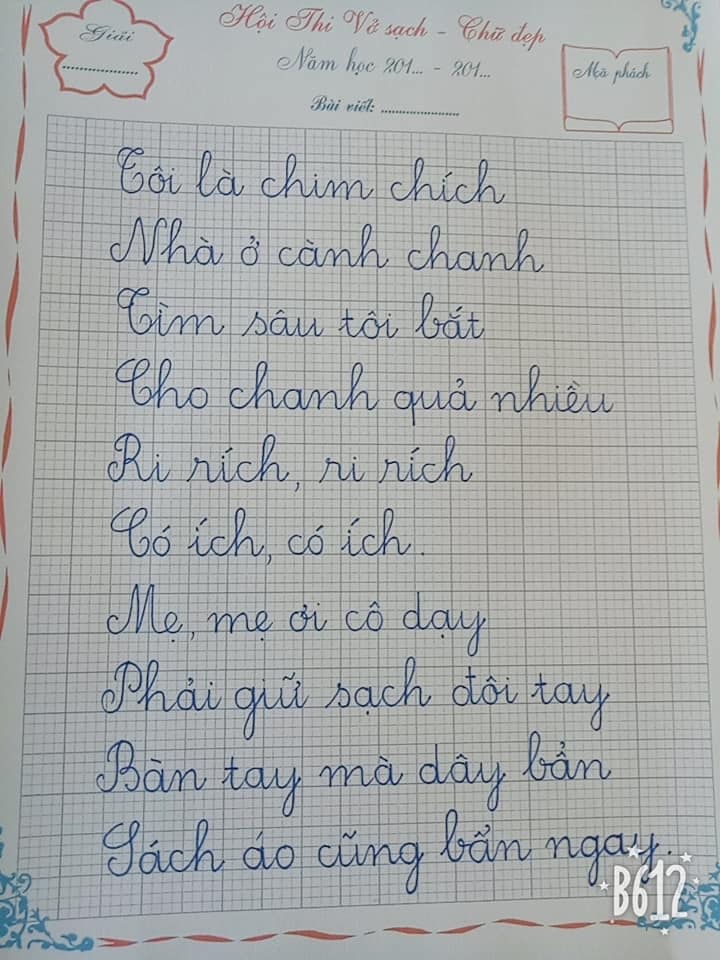 Giải
..................
Hội Thi Vở sạch - Chữ đẹp
Năm học 201... - 201...
Mã phách
Bài viết: ....................
Tôi là chim chích
Nhà ở cành chanh
Tìm sâu tôi bắt
Cho chanh quả nhiều
Ri rích, ri rích
Có ích, có ích.
Mẹ, mẹ ơi cô dạy
Phải giữ sạch đôi tay
Bàn tay mà dây bẩn
Sách áo cũng bẩn ngay.
B612